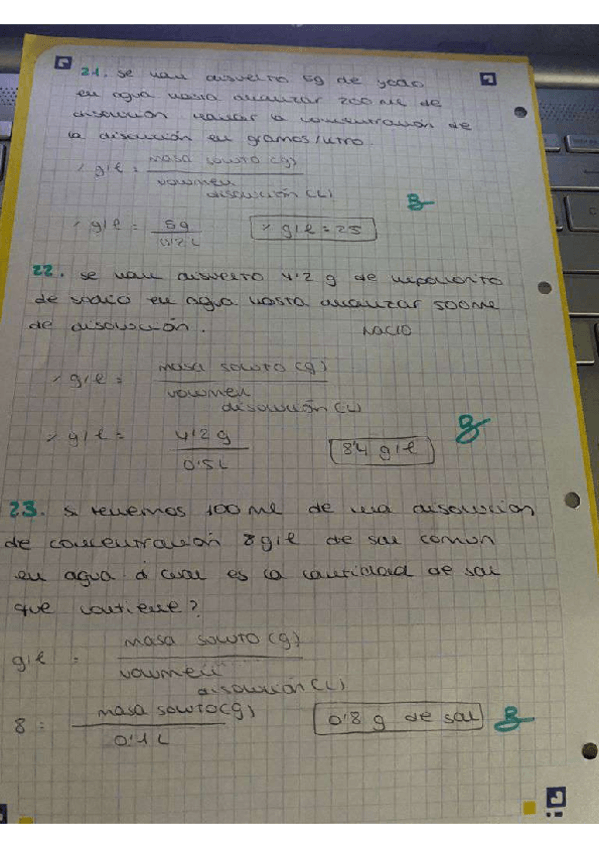 21. Se han disuelto 5g de yodo
en agua hasta alcanzar 200 ml de
disolución hallar la concentración de
la disolución en gramos/litro.
% g/l = masa soluto (g)
volumen
disolución (L)
B
% g/l = 5g
0'2 L
% g/l = 25
22. Se han disuelto 4'2 g de hipoclorito
de sodio en agua hasta alcanzar 500ml
de disolución.
NaClO
% g/l = masa soluto (g)
volumen
disolución (L)
% g/l = 4'2 g
0'5 L
8'4 g/l
B
23. Si tenemos 100 ml de una disolución
de concentración 8 g/l de sal común
en agua ¿ cual es la cantidad de sal
que contiene?
g/l = masa soluto (g)
volumen
disolución (L)
8 = masa soluto (g)
0'1 L
0'8 g de sal
B